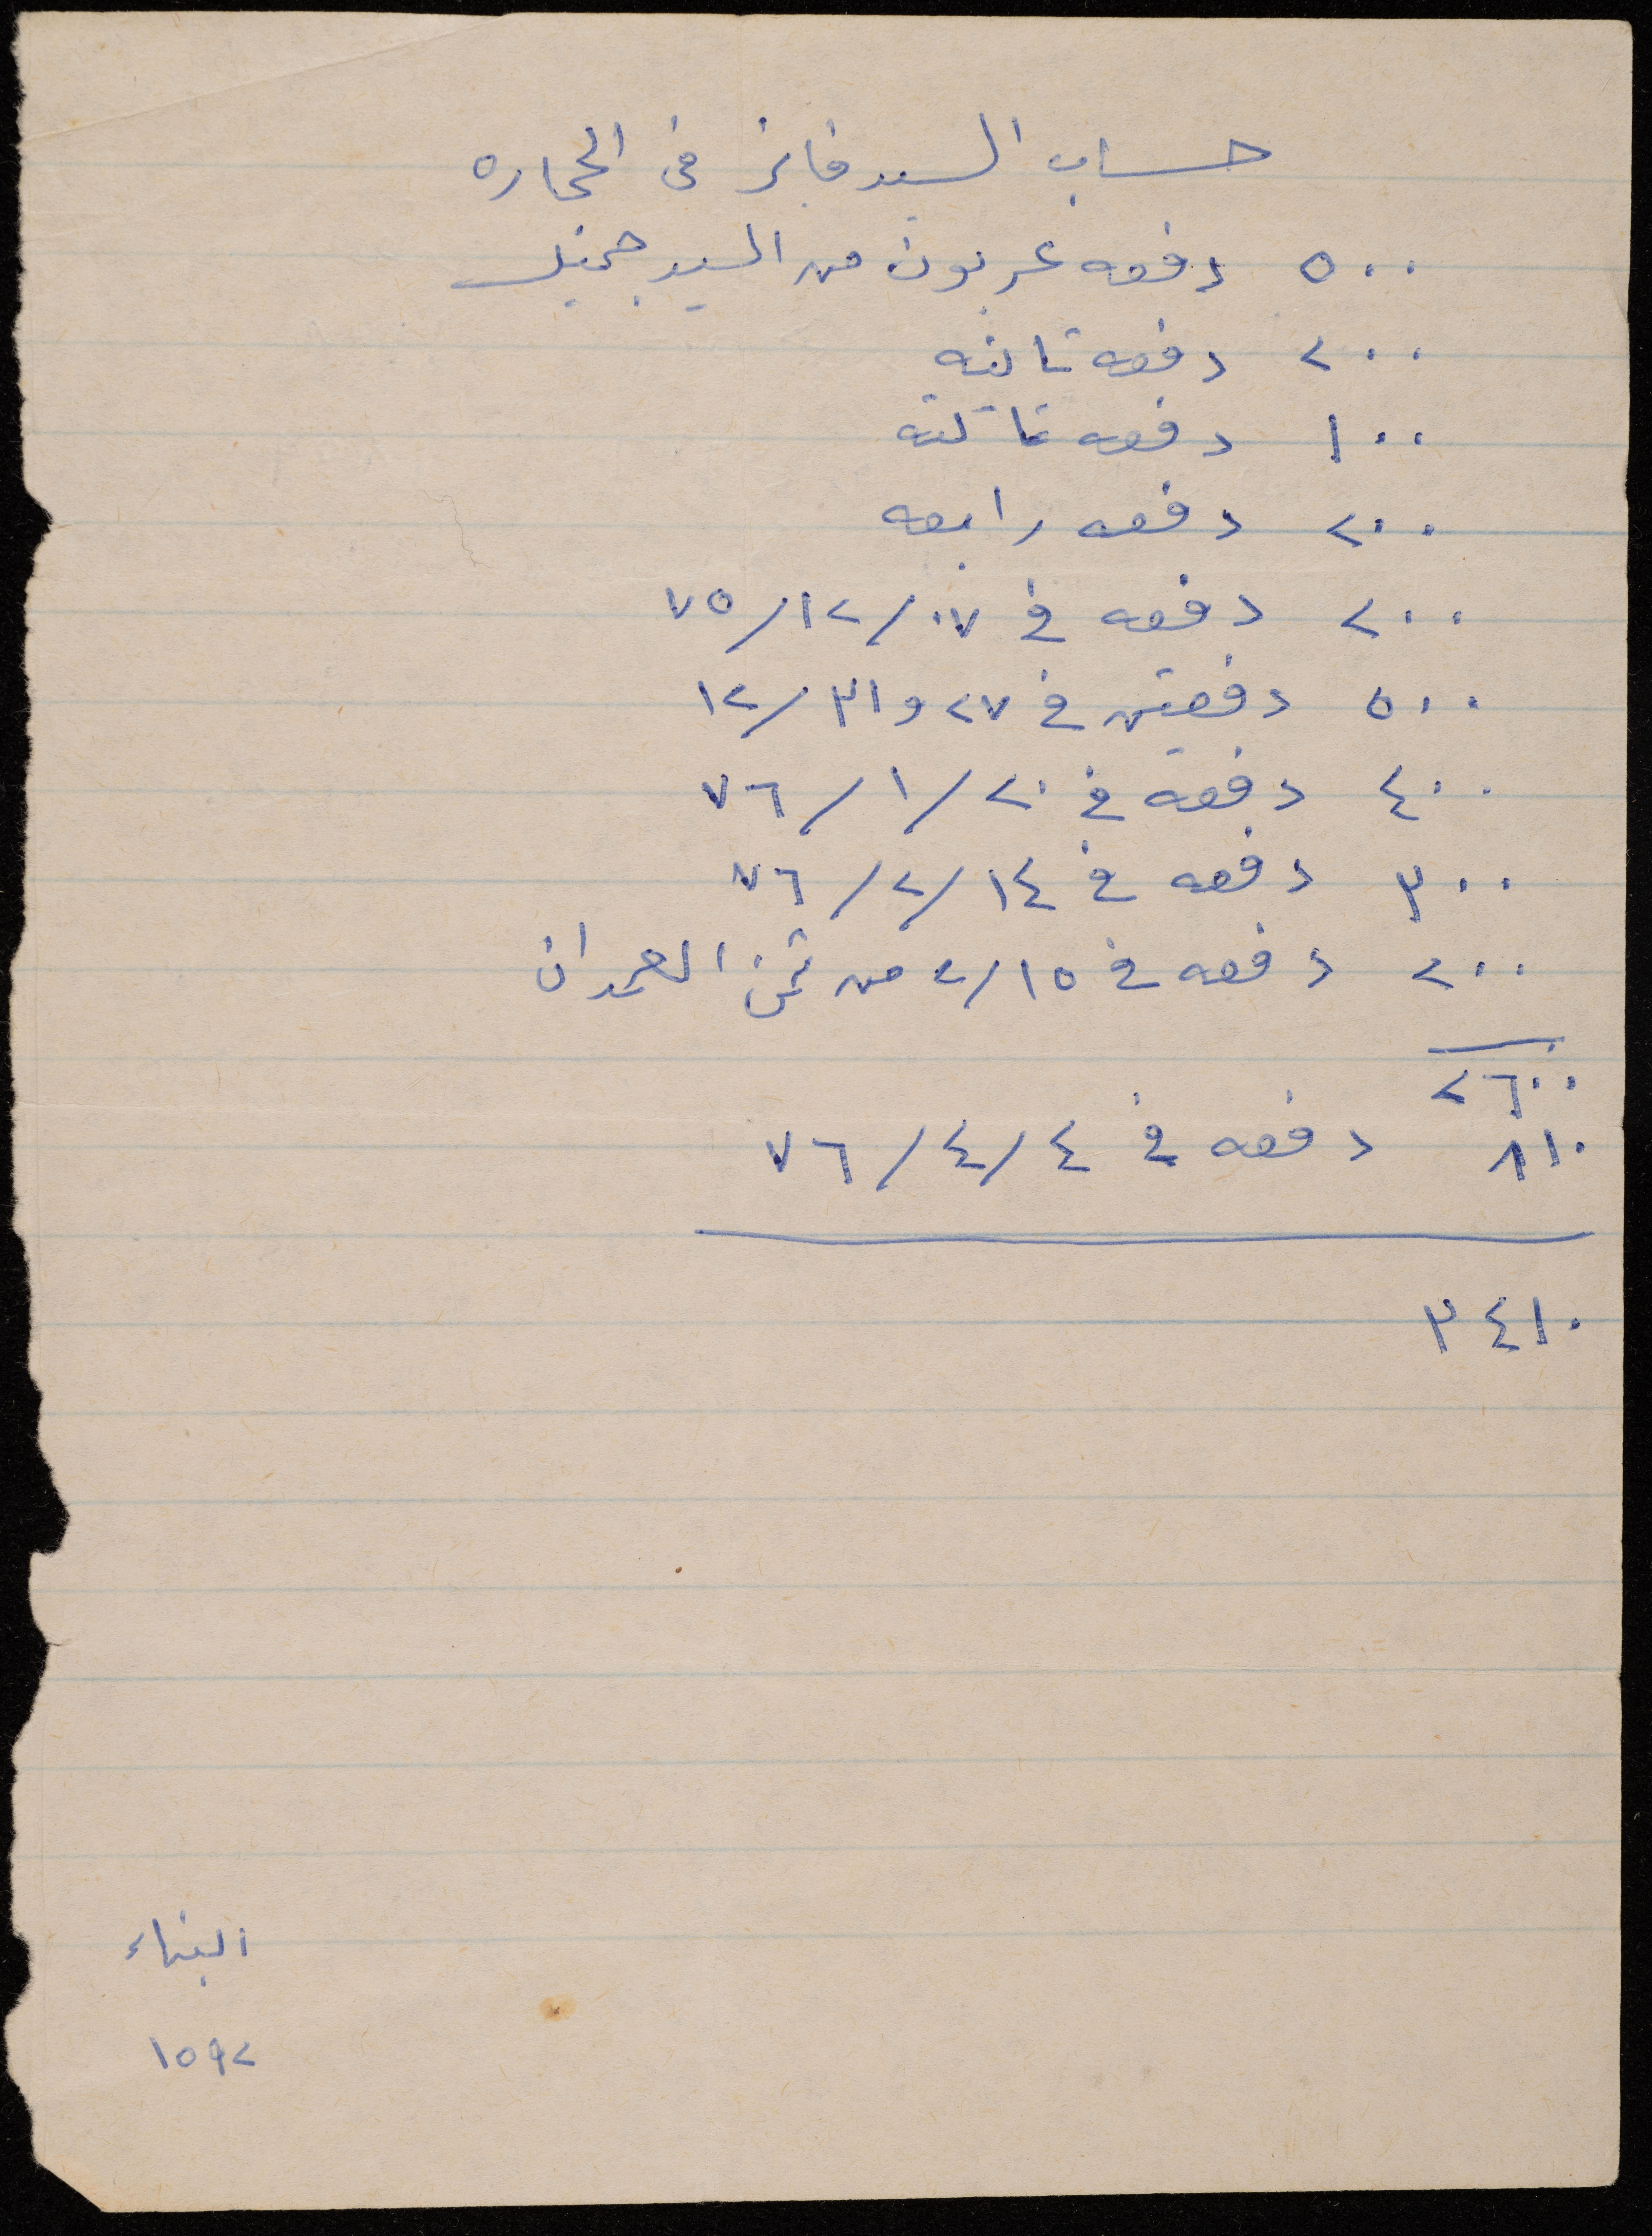 حساب السيد فايز فى الحجاره
٥٠٠ دفعه عربون من السيد جميل
٢٠٠ دفعه تانيه
١٠٠ دفعه تالته
٢٠٠ دفعه رابعه
٢٠٠ دفعه في ٠٧/١٢/٧٥
٥٠٠ دفعتين في ٢٧ و٣١/١٢
٤٠٠ دفعه في ٢٠/١/٧٦
٣٠٠ دفعه في ١٤/٢/٧٦
٢٠٠ دفعه في ١٥/٢ من ثمن العمدان
٢٦٠٠
٨١٠ دفعه في ٤/٤/٧٦
٣٤١٠
البناء
١٥٩٢